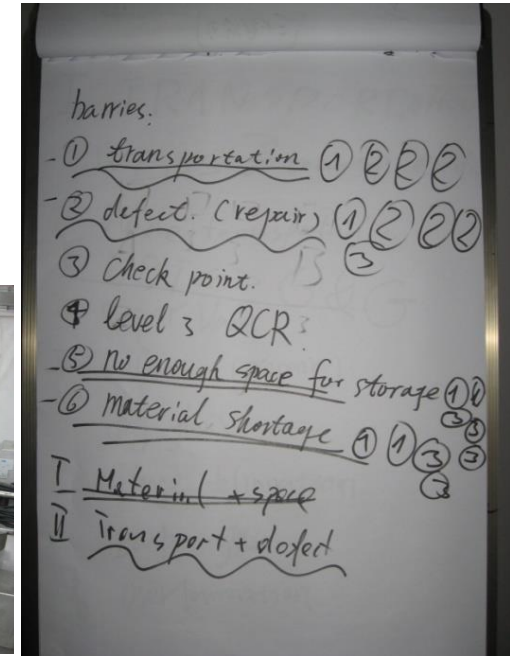 barries:
- ① transportation ① ② ② ②
- ② defect. (repair) ① ② ② ②
③
③ Check point.
④ level 3 QCR
- ⑤ no enough space for storage ① ①
③ ③
- ⑥ material shortage ① ① ③ ③
③
I Material + space
II Transport + defect